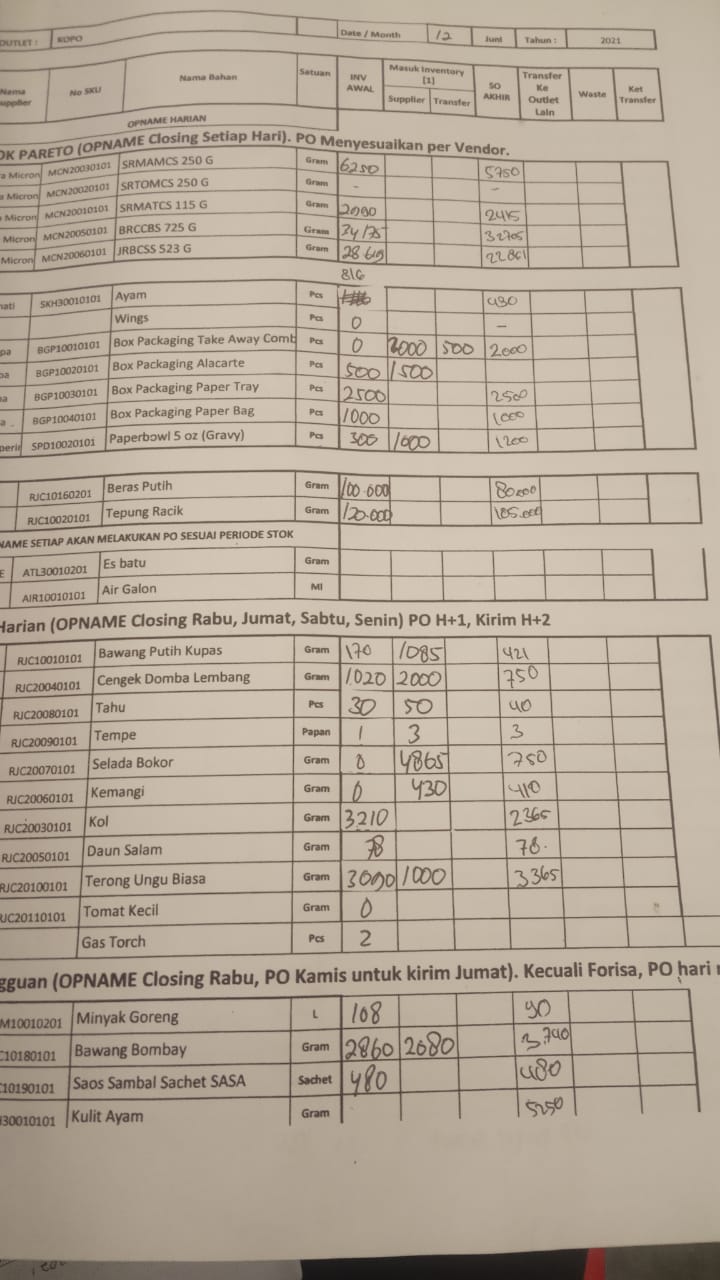 OUTLET : KOPO Date / Month 12 Juni Tahun : 2021
Nama Supplier No SKU Nama Bahan Satuan INV AWAL Masuk Inventory [1] Supplier Transfer SO AKHIR Transfer Ke Outlet Lain Waste Ket Transfer
OPNAME HARIAN
OK PARETO (OPNAME Closing Setiap Hari). PO Menyesuaikan per Vendor.
a Micron MCN20030101 SRMAMCS 250 G Gram 6250 5750
a Micron MCN20020101 SRTOMCS 250 G Gram - -
Micron MCN20010101 SRMATCS 115 G Gram 2415
Micron MCN20050101 BRCCBS 725 G Gram 32705
Micron MCN20060101 JRBCSS 523 G Gram 22861
816
hati SKH30010101 Ayam Pcs 430
Wings Pcs 0 -
pa BGP10010101 Box Packaging Take Away Comb Pcs 0 2000 500 2000
pa BGP10020101 Box Packaging Alacarte Pcs 500 1500
a BGP10030101 Box Packaging Paper Tray Pcs 2500 2500
a . BGP10040101 Box Packaging Paper Bag Pcs 1000 1000
perin SPD10020101 Paperbowl 5 oz (Gravy) Pcs 300 1000 1200
RJC10160201 Beras Putih Gram 100.000 80.000
RJC10020101 Tepung Racik Gram 120.000 105.000
NAME SETIAP AKAN MELAKUKAN PO SESUAI PERIODE STOK
E ATL30010201 Es batu Gram
AIR10010101 Air Galon Ml
Harian (OPNAME Closing Rabu, Jumat, Sabtu, Senin) PO H+1, Kirim H+2
RJC10010101 Bawang Putih Kupas Gram 170 1085 421
RJC20040101 Cengek Domba Lembang Gram 1020 2000 750
RJC20080101 Tahu Pcs 30 50 40
RJC20090101 Tempe Papan 1 3 3
RJC20070101 Selada Bokor Gram 0 4865 750
RJC20060101 Kemangi Gram 0 430 410
RJC20030101 Kol Gram 3210 2365
RJC20050101 Daun Salam Gram 78 78.
RJC20100101 Terong Ungu Biasa Gram 3090 1000 3365
RJC20110101 Tomat Kecil Gram 0
Gas Torch Pcs 2
gguan (OPNAME Closing Rabu, PO Kamis untuk kirim Jumat). Kecuali Forisa, PO hari
M10010201 Minyak Goreng L 108 90
C10180101 Bawang Bombay Gram 2860 2080 3.740
C10190101 Saos Sambal Sachet SASA Sachet 480 480
H30010101 Kulit Ayam Gram 5250